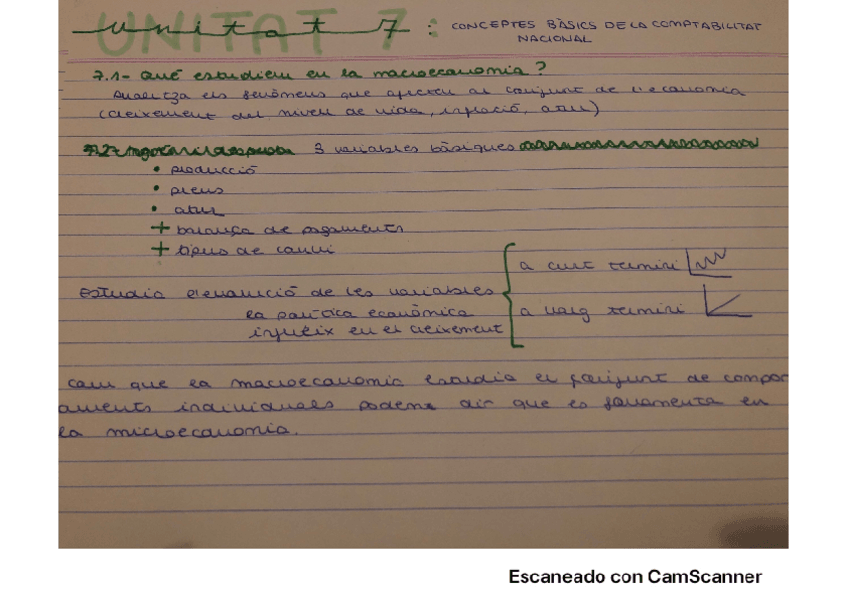 UNITAT 7
unitat 7 : CONCEPTES BÀSICS DE LA COMPTABILITAT
NACIONAL
7.1- Què estudiem en la macroeconomia?
Analitza els fenòmens que afecten al conjunt de l'economia
(creixement del nivell de vida, inflació, atur)
3 variables bàsiques
• producció
• preus
• atur
+ balança de pagaments
+ tipus de canvi
Estudia l'evolució de les variables
la política econòmica
influeix en el creixement
a curt termini
a llarg termini
com que la macroeconomia estudia el conjunt de compor
taments individuals podem dir que es fonamenta en
la microeconomia.
Escaneado con CamScanner